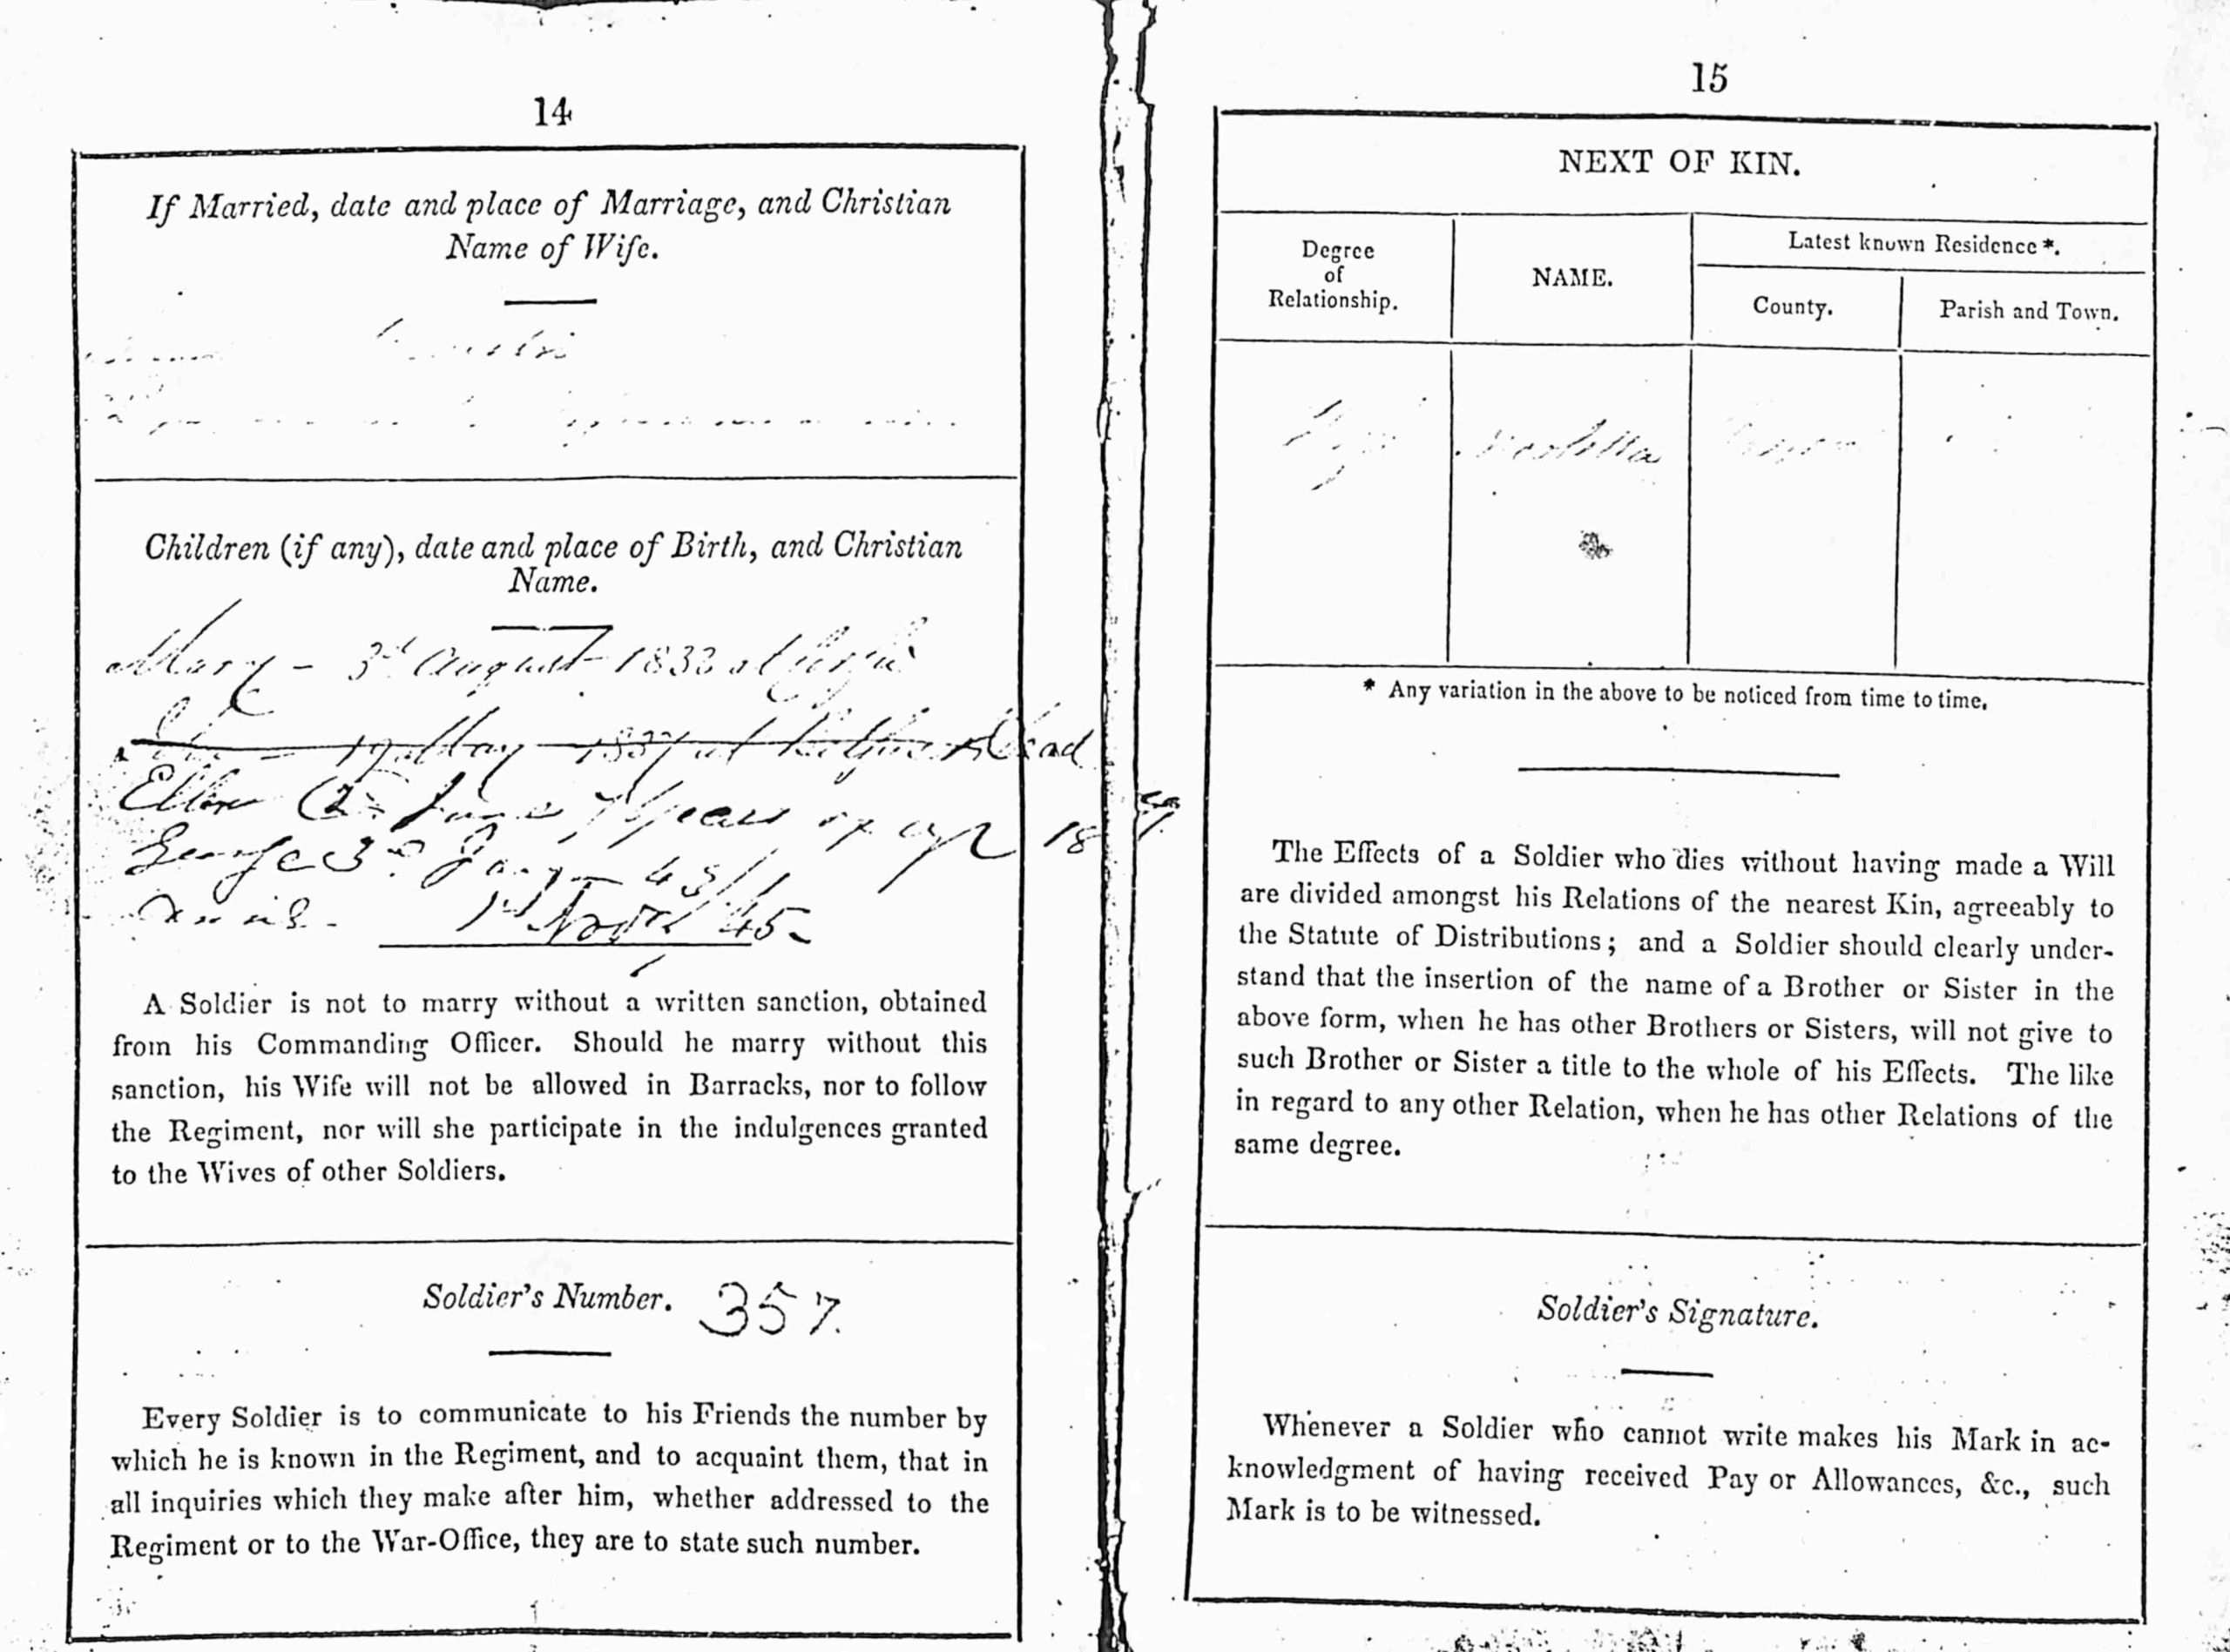 14
If Married, date and place of Marriage, and Christian
Name of Wife.
Children (if any), date and place of Birth, and Christian
Name.
Mary - 3d August 1833 at
19 May 1837 at Dead
Ellen June years of age 18
George 3d Jany 43
Annie - 1st Novr 45-
A Soldier is not to marry without a written sanction, obtained
from his Commanding Officer. Should he marry without this
sanction, his Wife will not be allowed in Barracks, nor to follow
the Regiment, nor will she participate in the indulgences granted
to the Wives of other Soldiers.
Soldier's Number. 357.
Every Soldier is to communicate to his Friends the number by
which he is known in the Regiment, and to acquaint them, that in
all inquiries which they make after him, whether addressed to the
Regiment or to the War-Office, they are to state such number.
15
NEXT OF KIN.
Degree
of
Relationship.
NAME.
Latest known Residence *.
County.
Parish and Town.
* Any variation in the above to be noticed from time to time.
The Effects of a Soldier who dies without having made a Will
are divided amongst his Relations of the nearest Kin, agreeably to
the Statute of Distributions; and a Soldier should clearly under-
stand that the insertion of the name of a Brother or Sister in the
above form, when he has other Brothers or Sisters, will not give to
such Brother or Sister a title to the whole of his Effects. The like
in regard to any other Relation, when he has other Relations of the
same degree.
Soldier's Signature.
Whenever a Soldier who cannot write makes his Mark in ac-
knowledgment of having received Pay or Allowances, &c., such
Mark is to be witnessed.